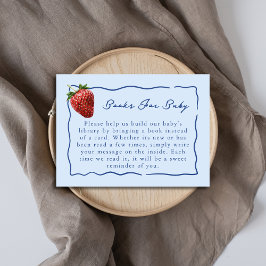 Books For Baby
Please help us build our baby's
library by bringing a book instead
of a card. Whether its new or has
been read a few times, simply write
your message on the inside. Each
time we read it, it will be a sweet
reminder of you.